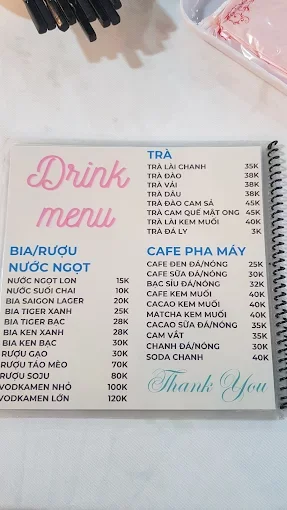 Drink
menu
TRÀ
TRÀ LÀI CHANH 35K
TRÀ ĐÀO 38K
TRÀ VẢI 38K
TRÀ DÂU 38K
TRÀ ĐÀO CAM SẢ 45K
TRÀ CAM QUẾ MẬT ONG 45K
TRÀ LÀI KEM MUỐI 40K
TRÀ ĐÁ LY 3K
BIA/RƯỢU
NƯỚC NGỌT
NƯỚC NGỌT LON 15K
NƯỚC SUỐI CHAI 10K
BIA SAIGON LAGER 20K
BIA TIGER XANH 25K
BIA TIGER BẠC 28K
BIA KEN XANH 28K
BIA KEN BẠC 30K
RƯỢU GẠO 30K
RƯỢU TÁO MÈO 70K
RƯỢU SOJU 80K
VODKAMEN NHỎ 100K
VODKAMEN LỚN 120K
CAFE PHA MÁY
CAFE ĐEN ĐÁ/NÓNG 25K
CAFE SỮA ĐÁ/NÓNG 30K
BẠC SỈU ĐÁ/NÓNG 32K
CAFE KEM MUỐI 40K
CACAO KEM MUỐI 40K
MATCHA KEM MUỐI 40K
CACAO SỮA ĐÁ/NÓNG 35K
CAM VẮT 35K
CHANH ĐÁ/NÓNG 30K
SODA CHANH 40K
Thank You